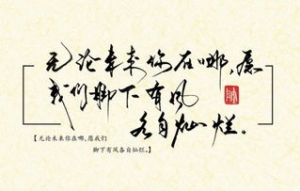 无论未来你在哪,愿
我们脚下有风
各自灿烂。
【无论未来你在哪,愿我们
脚下有风各自灿烂。】